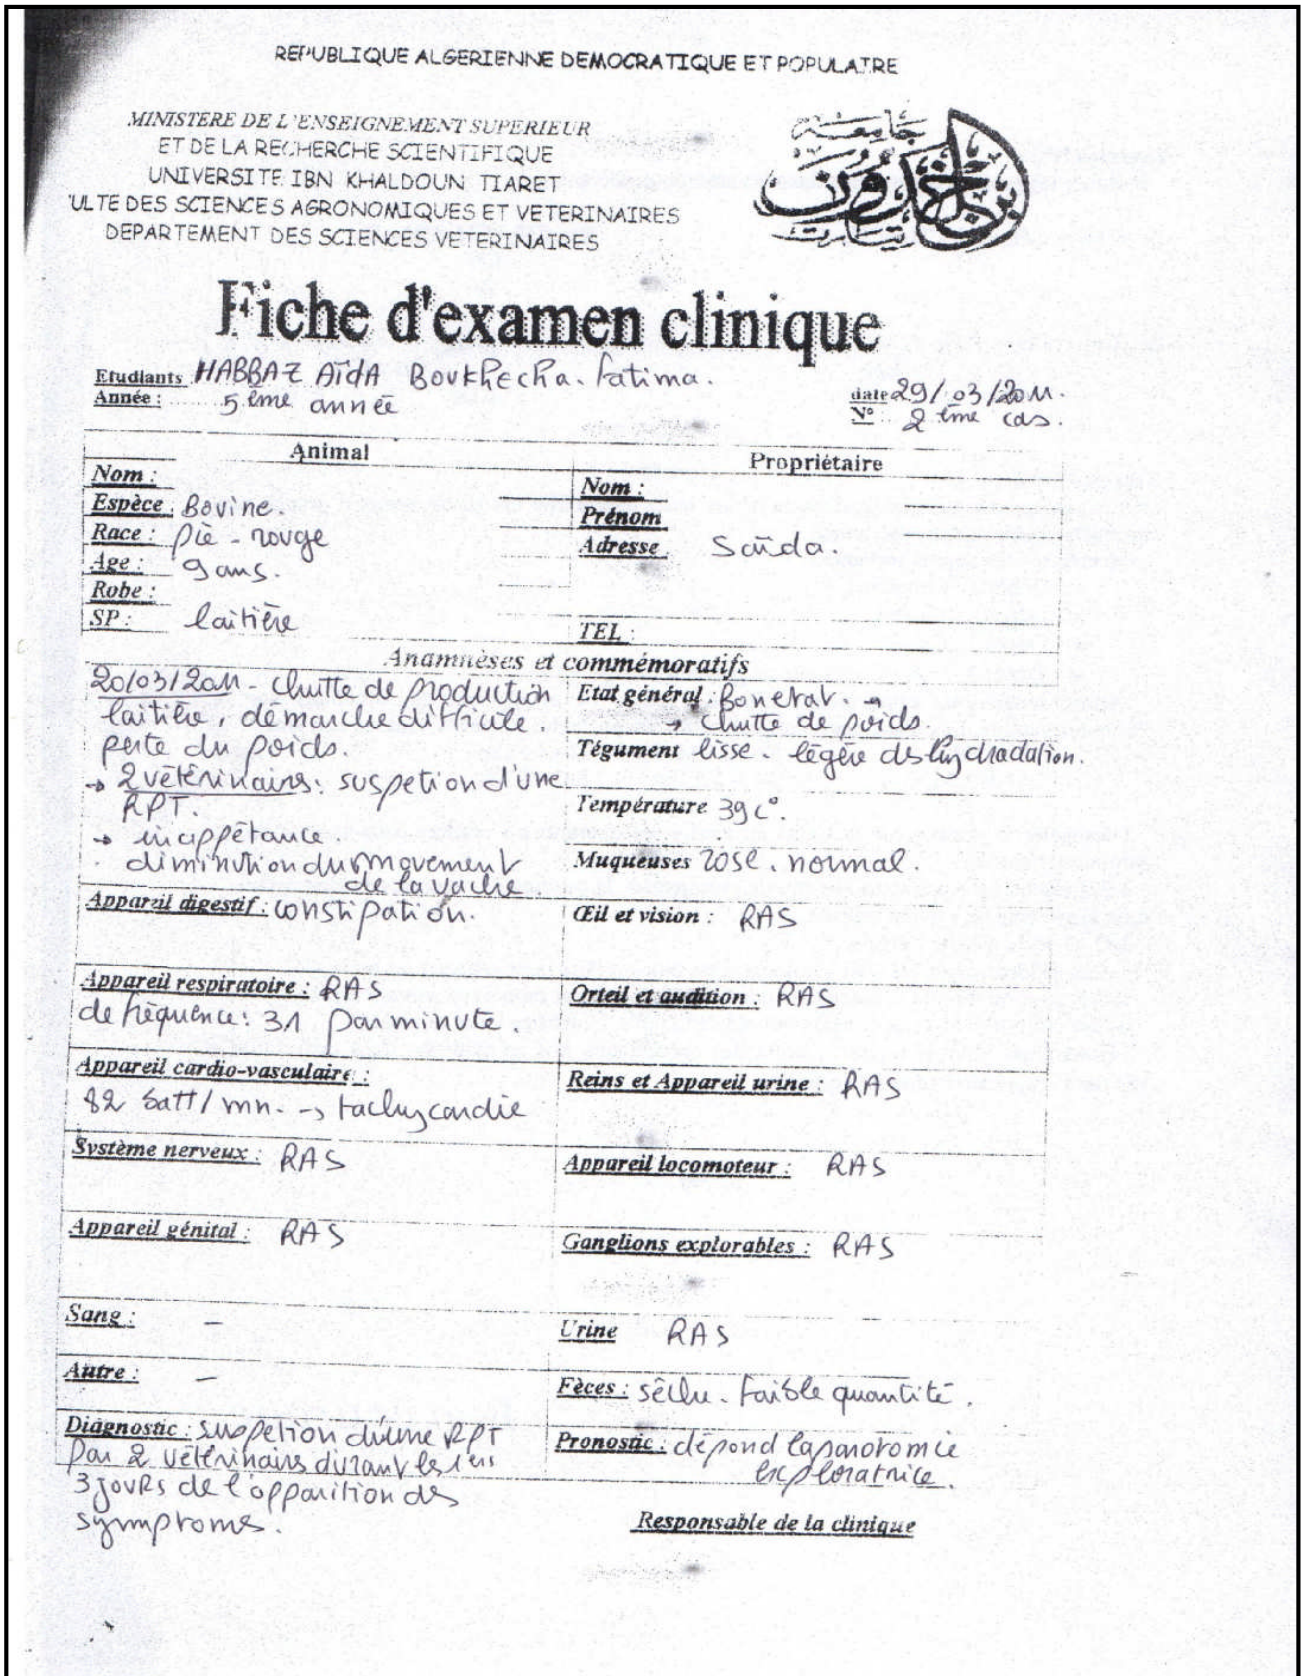 REPUBLIQUE ALGERIENNE DEMOCRATIQUE ET POPULAIRE
MINISTERE DE L'ENSEIGNEMENT SUPERIEUR
ET DE LA RECHERCHE SCIENTIFIQUE
UNIVERSITE IBN KHALDOUN TIARET
'ULTE DES SCIENCES AGRONOMIQUES ET VETERINAIRES
DEPARTEMENT DES SCIENCES VETERINAIRES
جامعة
ابن خلدون
تيارت
Fiche d'examen clinique
Etudiants HABBAZ AïdA Boukhecha. fatima.
Année : 5ème année
date 29/03/2011.
N° 2ème cas.
Animal
Propriétaire
Nom :
Espèce : Bovine.
Race : piè - rouge
Age : 9 ans.
Robe :
SP : laitière
Nom :
Prénom
Adresse Saïda.
TEL :
Anamnèses et commémoratifs
20/03/2011 - chutte de production
laitière, démarche difficile.
perte du poids.
→ 2 vétérinairs: suspetion d'une
RPT.
→ inappétance.
. diminution du movement
de la vache
Etat général : Bon etat. →
→ chutte de poids.
Tégument lisse. légère dshydradation.
Température 39 c°.
Muqueuses rose. normal.
Appareil digestif : constipation.
Œil et vision : RAS
Appareil respiratoire : RAS
de fréquence: 31 par minute.
Orteil et audition : RAS
Appareil cardio-vasculaire :
82 batt/mn. → tachycardie
Reins et Appareil urine : RAS
Système nerveux : RAS
Appareil locomoteur : RAS
Appareil génital : RAS
Ganglions explorables : RAS
Sang : –
Urine RAS
Autre : –
Fèces : sèche. faible quantité.
Diagnostic : suspetion d'une RPT
par 2 vétérinairs durant les 1ers
3 jours de l'apparition des
symptoms.
Pronostic : dépond laparotomie
exploratrice.
Responsable de la clinique